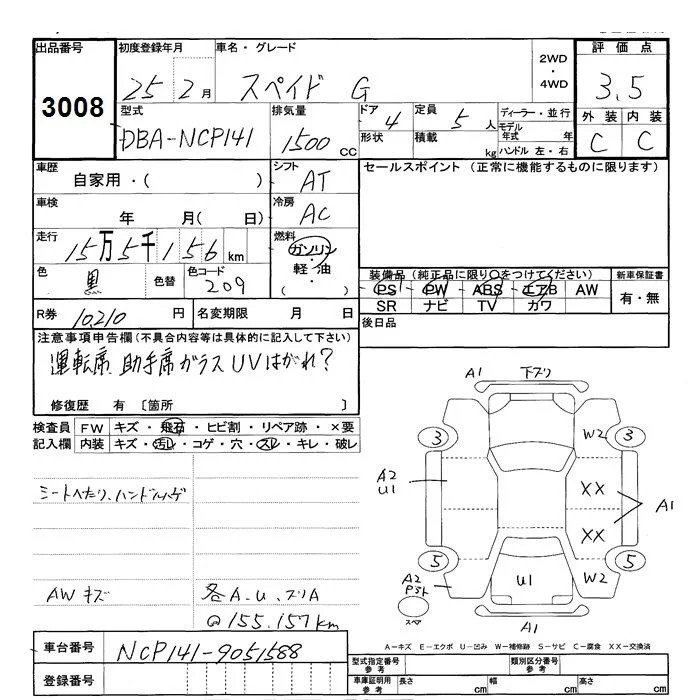 出品番号 初度登録年月 車名・グレード 2WD ・ 4WD 評価点
3008 25 2月 スペイド G 3.5
型式 排気量 ドア 4 定員 5人 ディーラー・並行 外装 内装
DBA-NCP141 1500 CC 形状 積載 kg モデル年式 年 C C
ハンドル 左・右
車歴 シフト セールスポイント (正常に機能するものに限ります)
自家用・( ) AT
車検 冷房
年 月( 日) AC
走行 燃料
15万5千156km ガソリン・軽油
色 黒 色替 色コード 209
装備品 (純正品に限り○をつけてください) 新車保証書
PS PW ABS エアB AW 有・無
SR ナビ TV カワ
R券 10,210 円 名変期限 月 日 後日品
注意事項申告欄(不具合内容等は具体的に記入して下さい)
運転席 助手席ガラスUVはがれ?
修復歴 有 〔箇所 〕
検査員 FW キズ・飛石・ヒビ割・リペア跡・×要
記入欄 内装 キズ・汚れ・コゲ・穴・スレ・キレ・破レ
A1 下スリ
3 W2 3
A2 U1
XX
A1
XX
5 W2 5
U1
A2
スペア
A1
シートへたり、ハンドルハゲ
AWキズ 各A.U.スリA
@155.157km
A-キズ E-エクボ U-凹み W-補修跡 S-サビ C-腐食 XX-交換済
車台番号 NCP141-9051588
登録番号
型式指定番号 参考 類別区分番号 参考
車庫証明用 参考 長さ cm 幅 cm 高さ cm